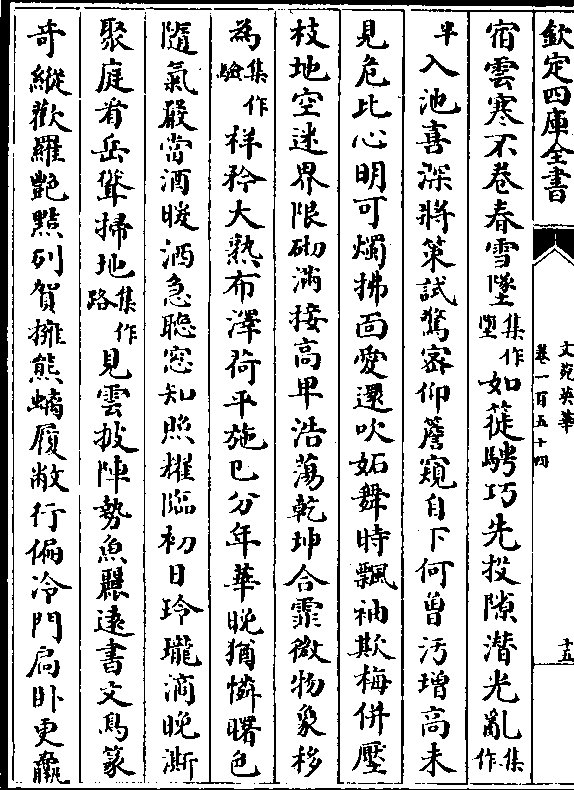 欽定四庫全書
文苑英華
卷一百五十四
十五
宿雲寒不卷春雪墜集作墮如蓰騁巧先投隙潜光亂集作
半入池喜深將策試驚密仰簷窺自下何曾污增高未
見危比心明可燭拂面愛還吹妬舞時飄袖欺梅併壓
枝地空迷界限砌滿接高卑浩蕩乾坤合霏微物象移
為集作驗祥矜大熟布澤荷平施已分年華晚猶憐曙色
隨氣嚴當酒暖洒急聽窓知照耀臨初日玲瓏滴晚澌
聚庭看岳聳掃地集作路見雲披陣勢魚麗遠書文鳥篆
奇縱歡羅艷黠列賀擁熊螭履敝行偏冷門扃卧更羸